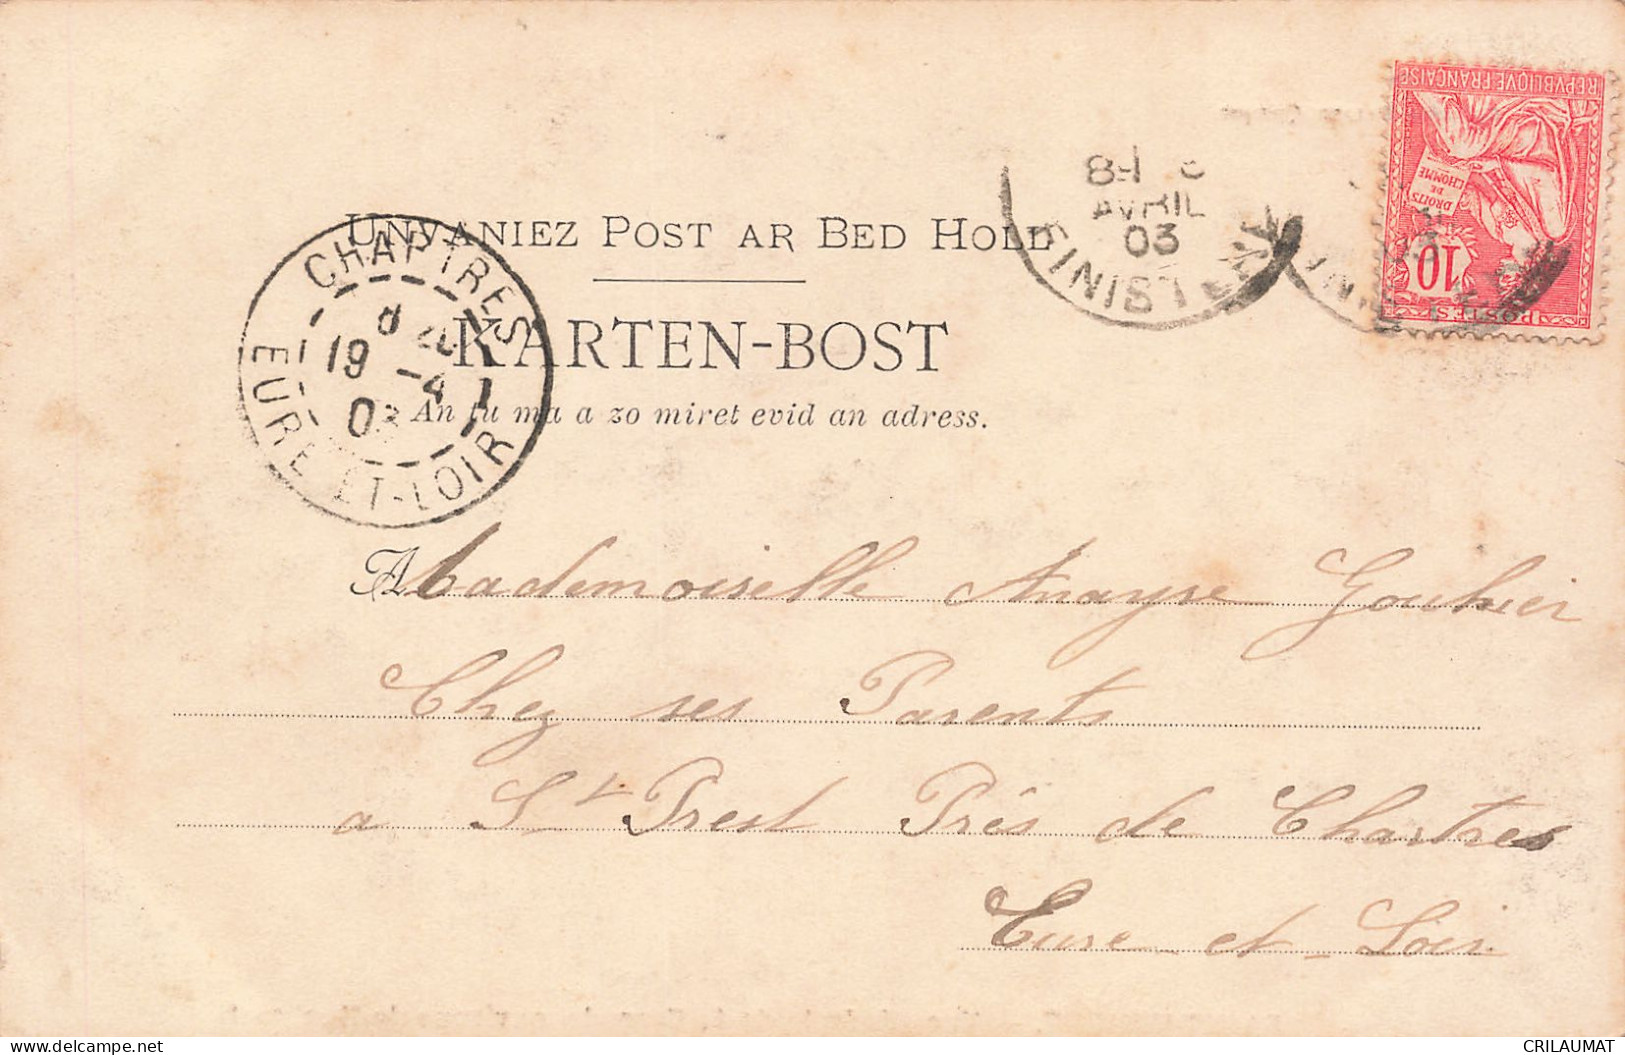 UNVANIEZ POST AR BED HOLL
KARTEN-BOST
An tu ma a zo miret evid an adress.
CHARTRES
19 -4
03
EURE ET-LOIR
AVRIL
03
FINISTERE
REPVBLIQVE FRANÇAISE
DROITS
DE
L'HOMME
10
POSTES
A Mademoiselle Anayse Gouhier
Chez ses Parents
a St Prest Près de Chartres
Eure et Loir
CRILAUMAT